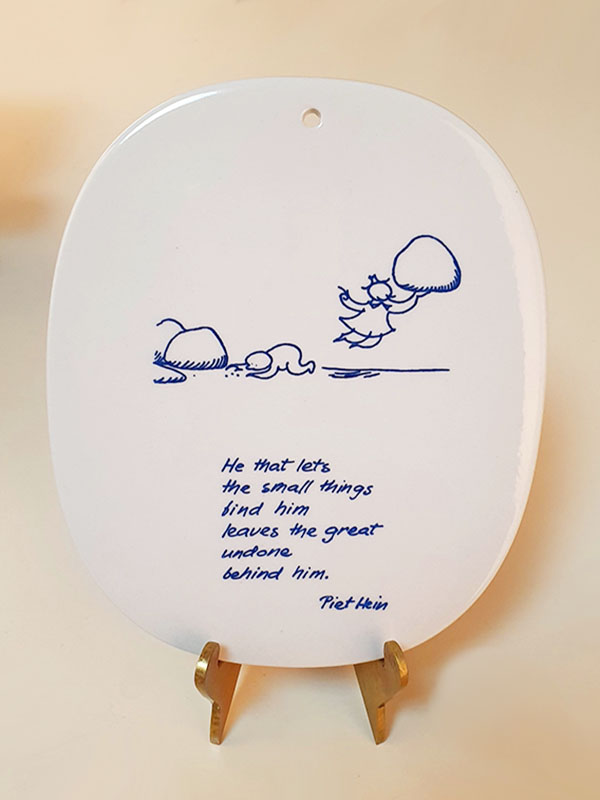 He that lets
the small things
bind him
leaves the great
undone
behind him.
Piet Hein